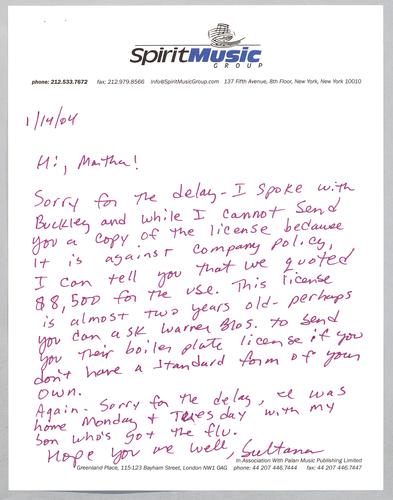 SpiritMusic
GROUP
phone: 212.533.7672 fax: 212.979.8566 Info@SpiritMusicGroup.com 137 Fifth Avenue, 8th Floor, New York, New York 10010
1/14/04
Hi, Martha!
Sorry for the delay - I spoke with
Buckley and while I cannot send
you a copy of the license because
it is against company policy,
I can tell you that we quoted
$8,500 for the use. This license
is almost two years old - perhaps
you can ask Warner Bros. to send
you their boiler plate license if you
don't have a standard form of your
own.
Again - Sorry for the delay, I was
home Monday & Tuesday with my
son who's got the flu.
Hope you are well, Sultana
In Association With Palan Music Publishing Limited
Greenland Place, 115-123 Bayham Street, London NW1 0AG phone: 44 207 446.7444 fax: 44 207 446.7447